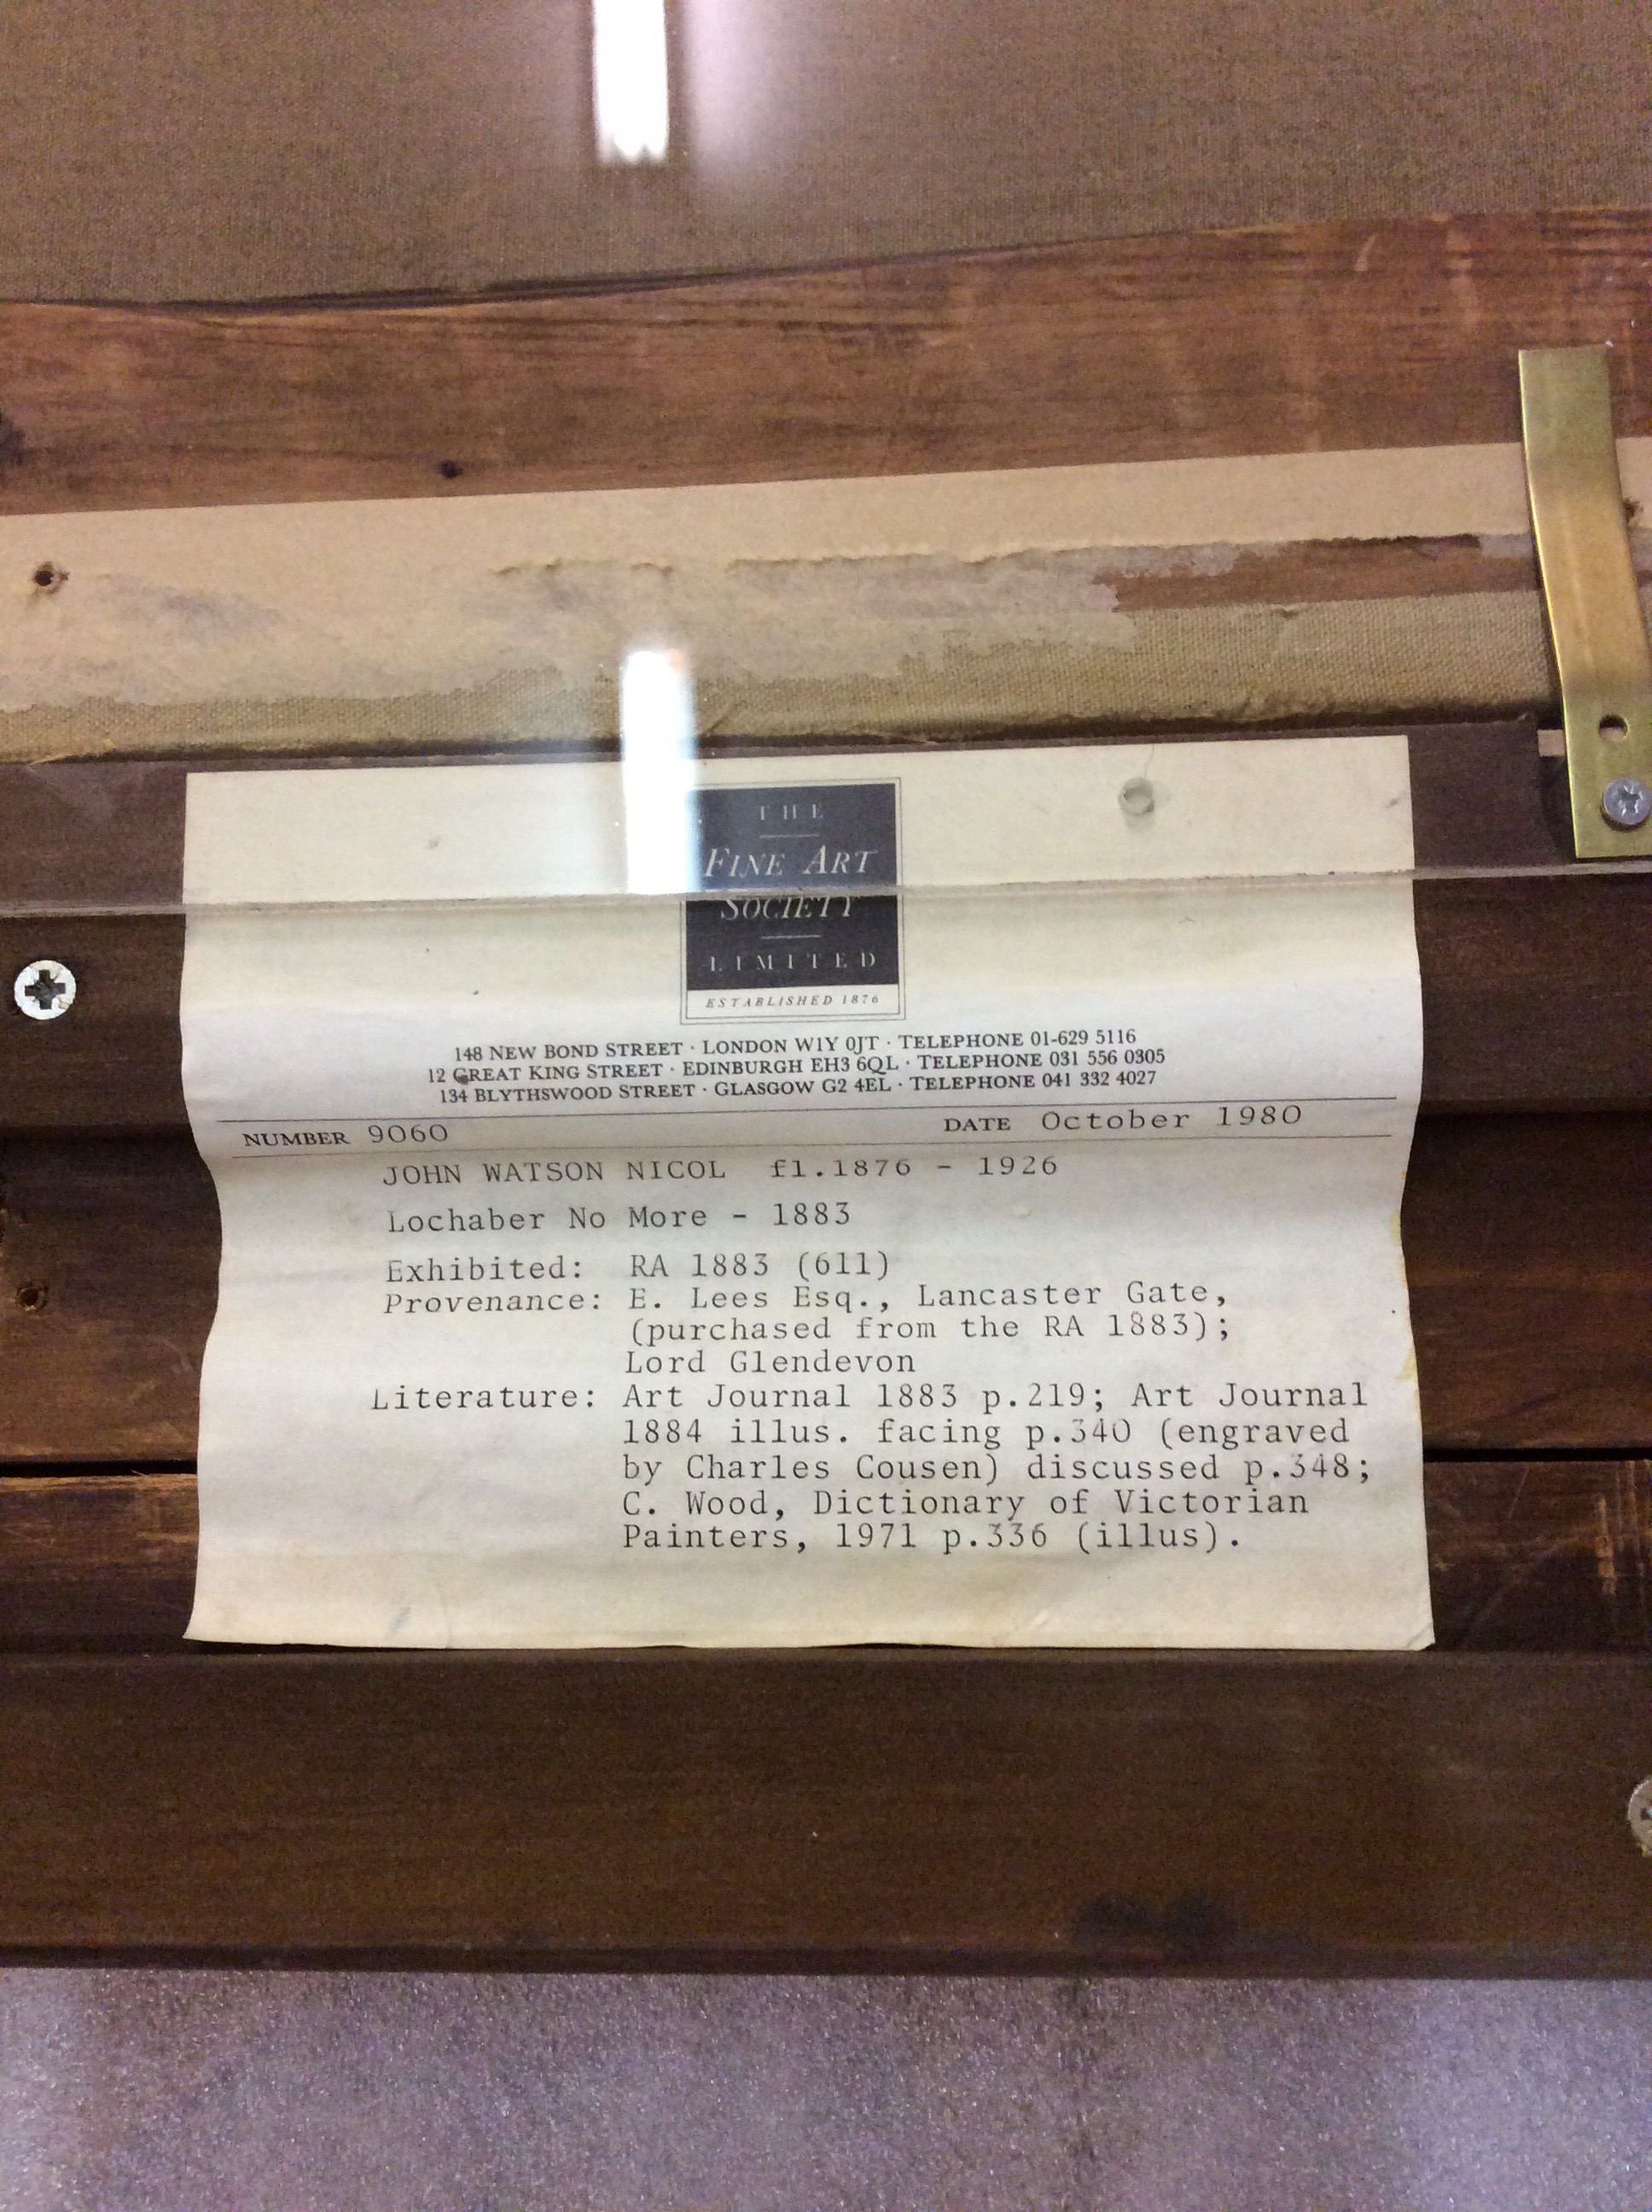 THE
FINE ART
SOCIETY
LIMITED
ESTABLISHED 1876
148 NEW BOND STREET · LONDON W1Y 0JT · TELEPHONE 01-629 5116
12 GREAT KING STREET · EDINBURGH EH3 6QL · TELEPHONE 031 556 0305
134 BLYTHSWOOD STREET · GLASGOW G2 4EL · TELEPHONE 041 332 4027
NUMBER 9060 DATE October 1980
JOHN WATSON NICOL fl.1876 - 1926
Lochaber No More - 1883
Exhibited: RA 1883 (611)
Provenance: E. Lees Esq., Lancaster Gate,
(purchased from the RA 1883);
Lord Glendevon
Literature: Art Journal 1883 p.219; Art Journal
1884 illus. facing p.340 (engraved
by Charles Cousen) discussed p.348;
C. Wood, Dictionary of Victorian
Painters, 1971 p.336 (illus).